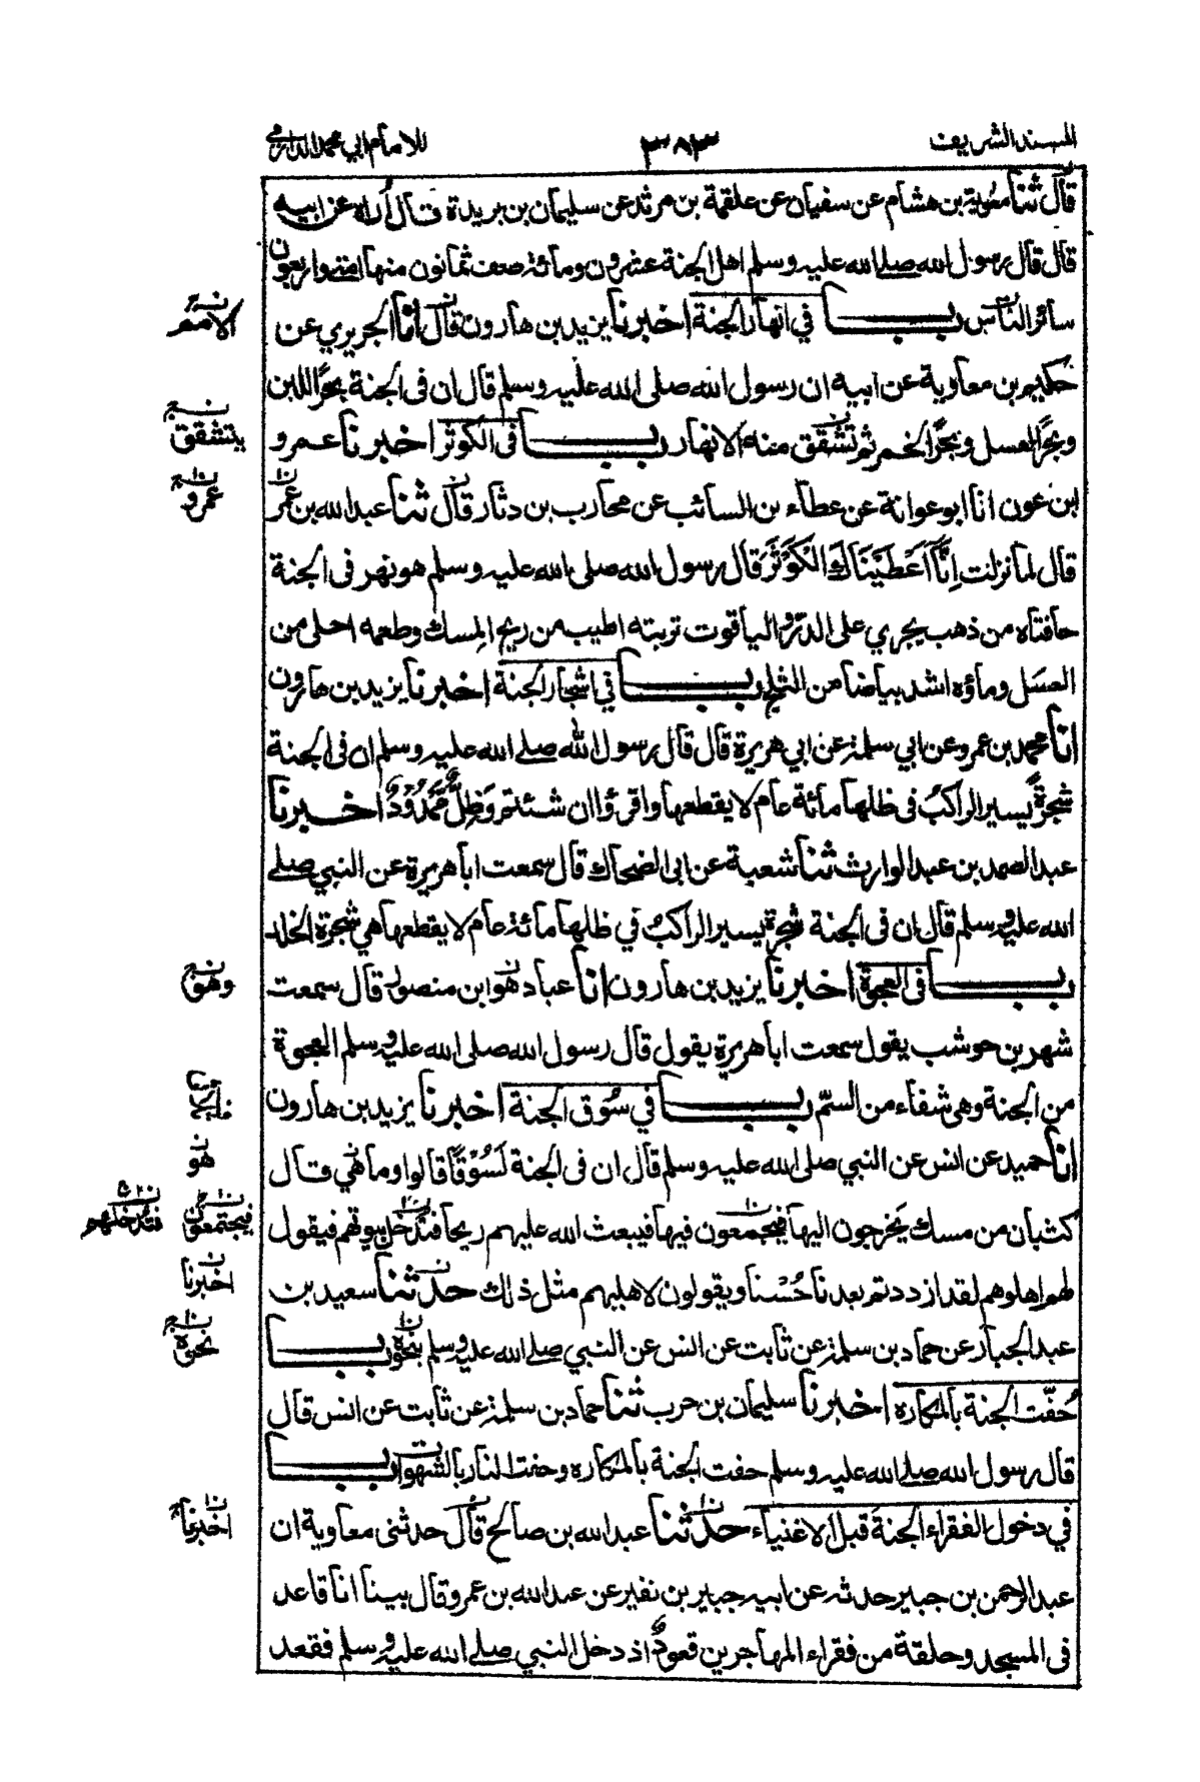 المسند الشريف ٣٨٣ للامام ابي محمد الدارمي
قال ثنا معوية بن هشام عن سفيان عن علقمة بن مرثد عن سليمان بن بريدة قال أراه عن ابيه
قال قال رسول الله صلى الله عليه وسلم اهل الجنة عشرون ومائة صف ثمانون منها امتي واربعون
سائر الناس باب في انهار الجنة اخبرنا يزيد بن هارون قال أنا الجريري عن
الامم
حكيم بن معاوية عن ابيه ان رسول الله صلى الله عليه وسلم قال ان فى الجنة بحر اللبن
وبحر العسل وبحر الخمر ثم تشقق منه الانهار باب فى الكوثر اخبرنا عمرو
يتشقق
ابن عون انا ابو عوانة عن عطاء بن السائب عن محارب بن دثار قال ثنا عبد الله بن عمر
عمرو
قال لما نزلت اِنَّا اَعْطَيْنَاكَ الْكَوْثَرَ قال رسول الله صلى الله عليه وسلم هو نهر فى الجنة
حافتاه من ذهب يجري على الدر والياقوت تربته اطيب من ريح المسك وطعمه احلى من
العسل وماؤه اشد بياضا من الثلج باب في اشجار الجنة اخبرنا يزيد بن هارون
انا محمد بن عمرو عن ابي سلمة عن ابي هريرة قال قال رسول الله صلى الله عليه وسلم ان فى الجنة
شجرة يسير الراكب فى ظلها مائة عام لا يقطعها واقرؤا ان شئتم وَظِلٍّ مَّمْدُوْدٍ اخبرنا
عبد الصمد بن عبد الوارث ثنا شعبة عن ابى الضحاك قال سمعت ابا هريرة عن النبي صلى
الله عليه وسلم قال ان فى الجنة شجرة يسير الراكب في ظلها مائة عام لا يقطعها هي شجرة الخلد
باب فى العجوة اخبرنا يزيد بن هارون انا عباد هو ابن منصور قال سمعت
وهو
شهر بن حوشب يقول سمعت ابا هريرة يقول قال رسول الله صلى الله عليه وسلم العجوة
من الجنة وهى شفاء من السم باب في سُوق الجنة اخبرنا يزيد بن هارون
انا حميد عن انس عن النبي صلى الله عليه وسلم قال ان فى الجنة لَسُوْقًا قالوا وما هي قال
هو
كثبان من مسك يخرجون اليها فيجمعون فيها فيبعث الله عليهم ريحا فتدخل بيوتهم فيقول
فيجتمعون فتدخلهم
لهم اهلوهم لقد ازددتم بعدنا حُسْنا ويقولون لاهليهم مثل ذلك حدثنا سعيد بن
اخبرنا
عبد الجبار عن حماد بن سلمة عن ثابت عن انس عن النبي صلى الله عليه وسلم بنحوه باب
نحوه
حُفّت الجنة بالمكاره اخبرنا سليمان بن حرب ثنا حماد بن سلمة عن ثابت عن انس قال
قال رسول الله صلى الله عليه وسلم حفت الجنة بالمكاره وحفت النار بالشهوات باب
في دخول الفقراء الجنة قبل الاغنياء حدثنا عبد الله بن صالح قال حدثنى معاوية ان
اخبرنا
عبد الرحمن بن جبير حدثه عن ابيه جبير بن نفير عن عبد الله بن عمرو قال بينا انا قاعد
فى المسجد وحلقة من فقراء المهاجرين قعود اذ دخل النبي صلى الله عليه وسلم فقعد